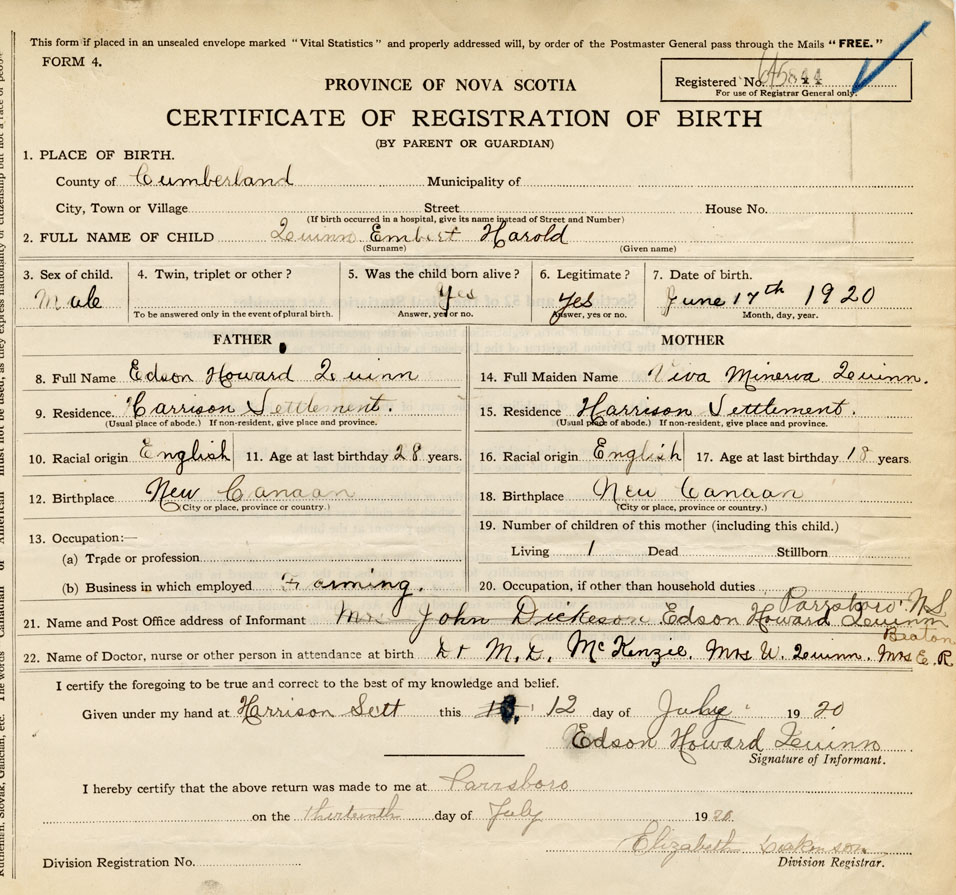 This form if placed in an unsealed envelope marked "Vital Statistics" and properly addressed will, by order of the Postmaster General pass through the Mails "FREE."
FORM 4.
PROVINCE OF NOVA SCOTIA
Registered No.
For use of Registrar General only.
CERTIFICATE OF REGISTRATION OF BIRTH
(BY PARENT OR GUARDIAN)
1. PLACE OF BIRTH.
County of Cumberland Municipality of
City, Town or Village Street House No.
(If birth occurred in a hospital, give its name instead of Street and Number)
2. FULL NAME OF CHILD Quinn Embert Harold
(Surname) (Given name)
3. Sex of child. 4. Twin, triplet or other? 5. Was the child born alive? 6. Legitimate? 7. Date of birth.
Male Yes Yes June 17th 1920
To be answered only in the event of plural birth. Answer, yes or no. Answer, yes or no. Month, day, year.
FATHER MOTHER
8. Full Name Edson Howard Quinn 14. Full Maiden Name Viva Minerva Quinn.
9. Residence. Harrison Settlement. 15. Residence Harrison Settlement.
(Usual place of abode.) If non-resident, give place and province. (Usual place of abode.) If non-resident, give place and province.
10. Racial origin English 11. Age at last birthday 28 years. 16. Racial origin English 17. Age at last birthday 18 years.
12. Birthplace New Canaan 18. Birthplace New Canaan
(City or place, province or country.) (City or place, province or country.)
13. Occupation:— 19. Number of children of this mother (including this child.)
(a) Trade or profession Living 1 Dead Stillborn
(b) Business in which employed Farming. 20. Occupation, if other than household duties
Parrsboro. N.S.
21. Name and Post Office address of Informant Mrs John Dickeson Edson Howard Quinn
Beaton
22. Name of Doctor, nurse or other person in attendance at birth Dr M.D. McKenzie. Mrs W. Quinn. Mrs E. R
I certify the foregoing to be true and correct to the best of my knowledge and belief.
Given under my hand at Harrison Sett this 12 day of July 1920
Edson Howard Quinn
Signature of Informant.
I hereby certify that the above return was made to me at Parrsboro
on the thirteenth day of July 1920
Elizabeth
Division Registration No. Division Registrar.